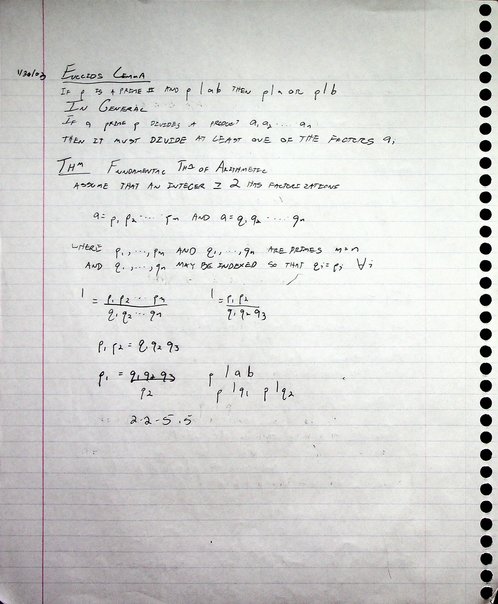 1/30/03 Euclids Lemma
If p is a prime # and p | ab then p|a or p|b
In General
If a prime p divides a product a₁a₂ ····· aₙ
then it must divide at least one of the factors aᵢ
Thm Fundamental Thm of Arithmetic
Assume that an integer ≥ 2 has factorizations
a = p₁ p₂ ····· pₘ and a = q₁ q₂ ···· qₙ
where p₁, ..., pₘ and q₁, ..., qₙ are primes m = n
and q₁, ..., qₙ may be indexed so that qᵢ = pᵢ ∀ i
1 = p₁ p₂ ··· pₘ / q₁ q₂ ··· qₙ 1 = p₁ p₂ / q₁ q₂ q₃
p₁ p₂ = q₁ q₂ q₃
p₁ = q₁ q₂ q₃ / p₂ p | ab
p | q₁ p | q₂
2·2·5·5